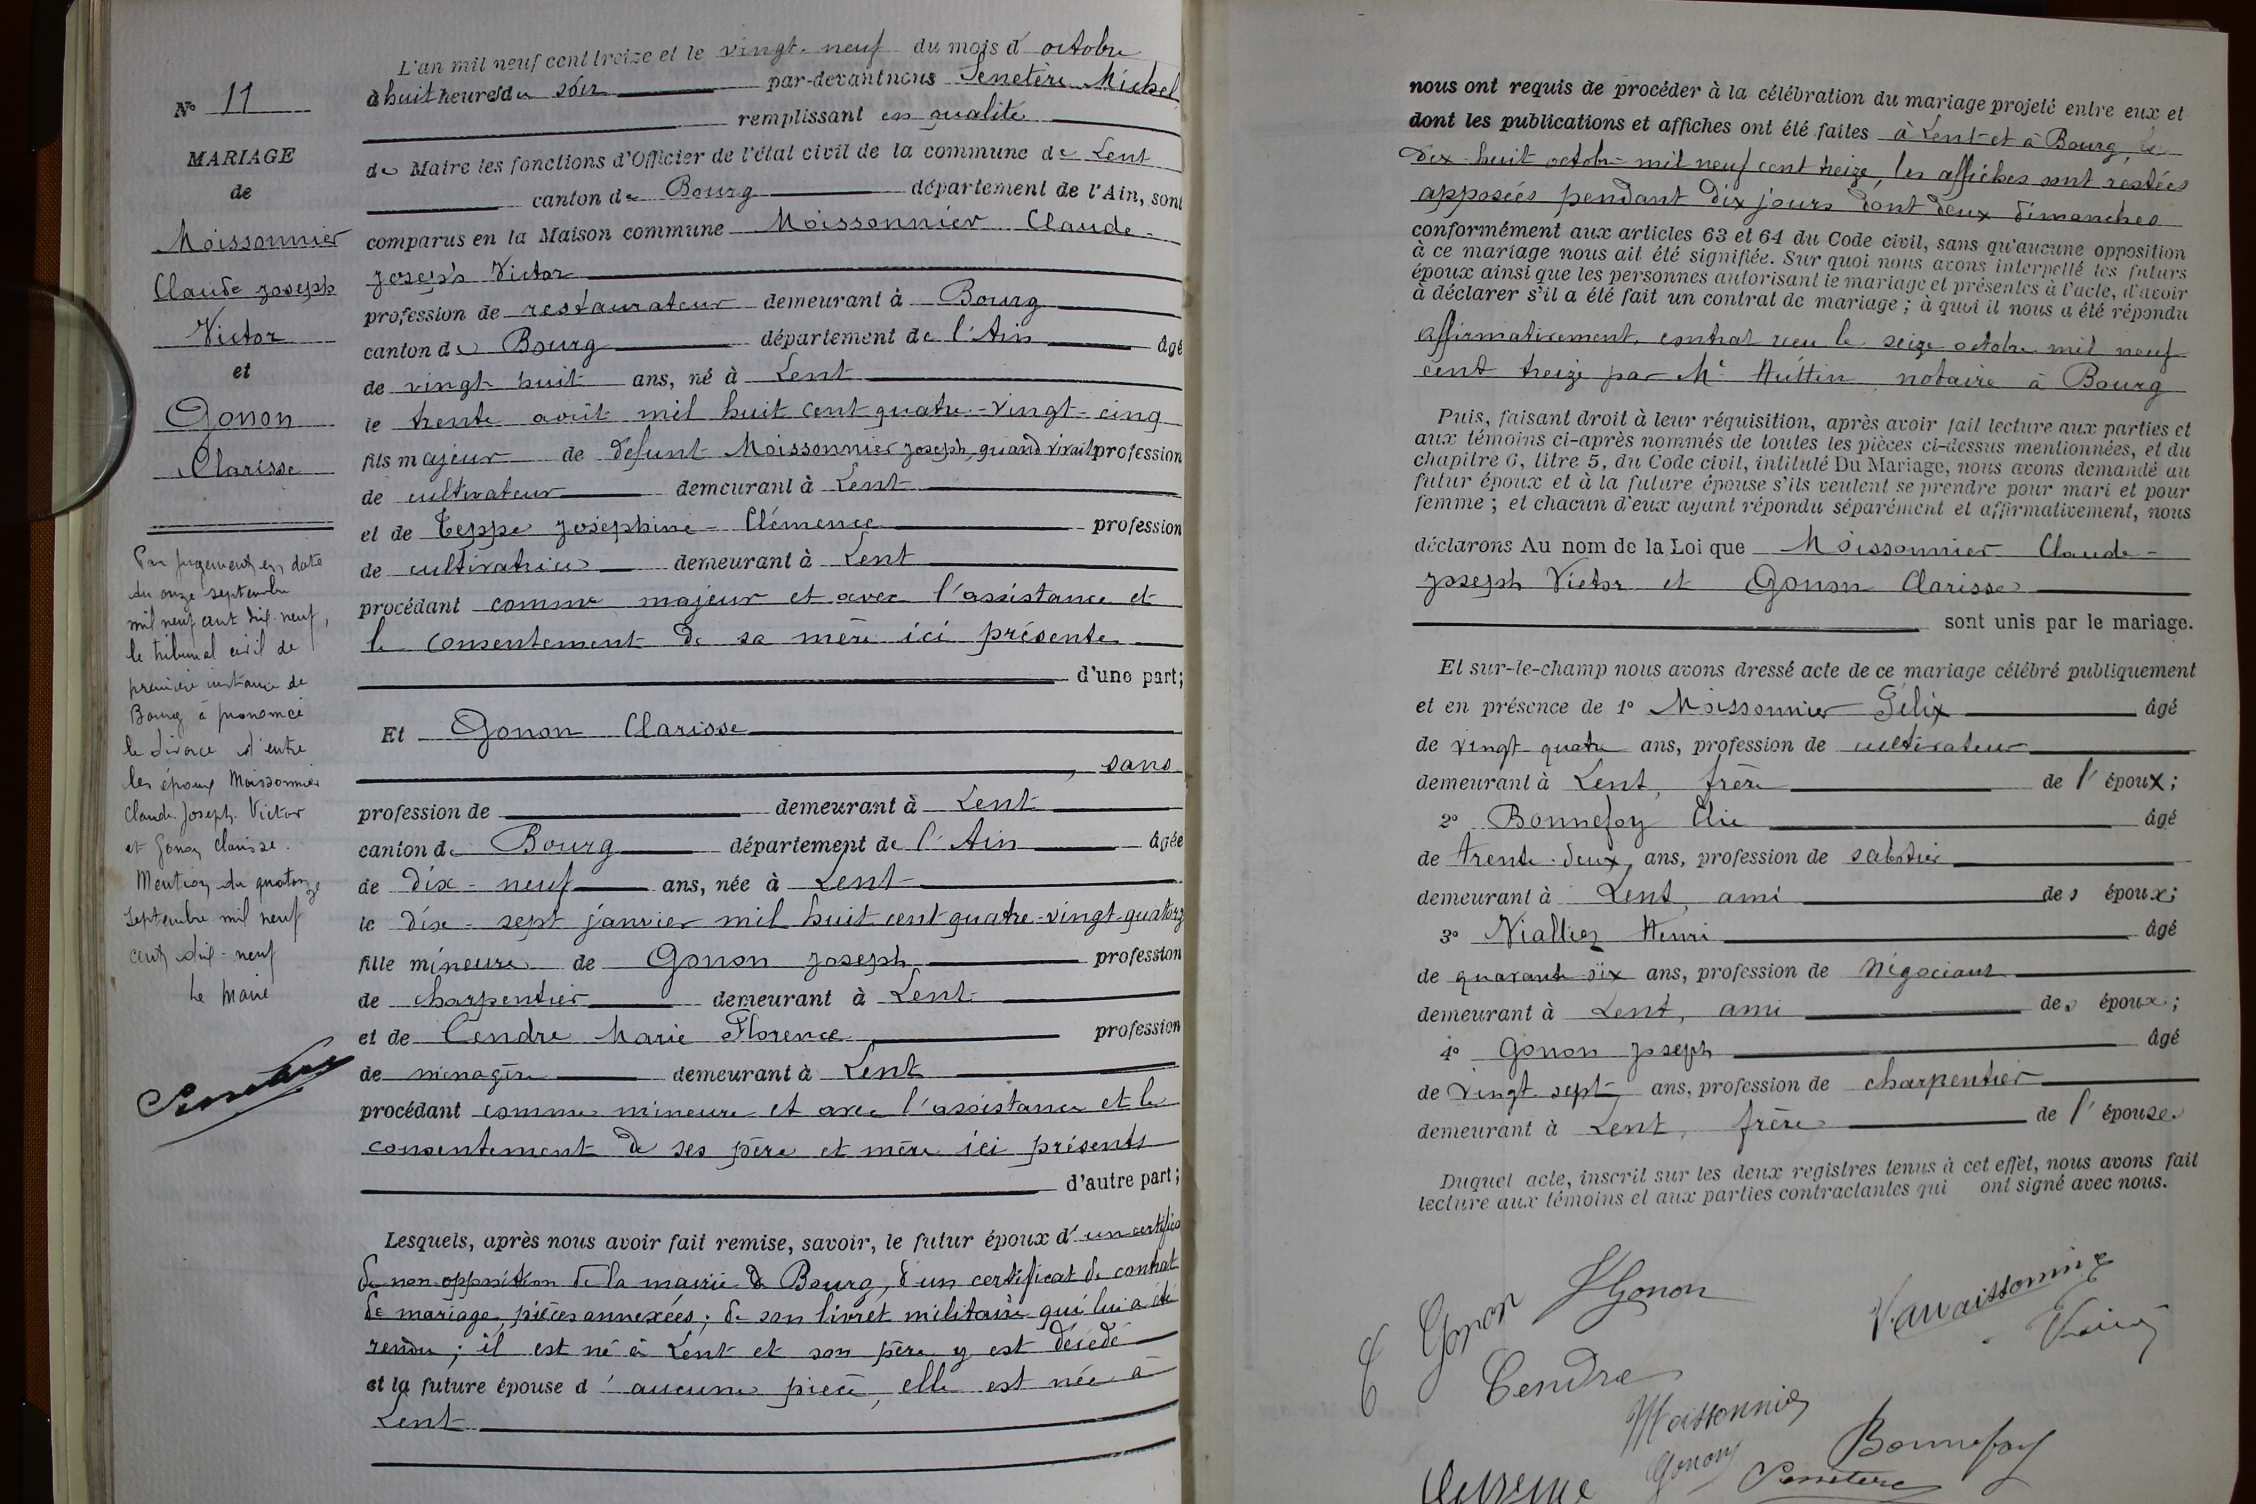 N° 11
MARIAGE
de
Moissonnier
Claude Joseph
Victor
et
Gonon
Clarisse
Par jugement en date
du onze septembre
mil neuf cent dix-neuf,
le tribunal civil de
première instance de
Bourg à prononcé
le divorce d'entre
les époux Moissonnier
Claude Joseph Victor
et Gonon Clarisse.
Mention du quatorze
septembre mil neuf
cent dix-neuf
Le Maire
Senetère
L'an mil neuf cent treize et le vingt-neuf du mois d'octobre
à huit heures du soir par-devant nous Senetère Michel
remplissant en qualité
de Maire les fonctions d'Officier de l'état civil de la commune de Lent
canton de Bourg département de l'Ain, sont
comparus en la Maison commune Moissonnier Claude-
Joseph Victor
profession de restaurateur demeurant à Bourg
canton de Bourg département de l'Ain âgé
de vingt huit ans, né à Lent
le trente août mil huit cent quatre-vingt-cinq
fils majeur de défunt Moissonnier Joseph, quand vivait profession
de cultivateur demeurant à Lent
et de Teppe Joséphine-Clémence profession
de cultivatrice demeurant à Lent
procédant comme majeur et avec l'assistance et
le consentement de sa mère ici présente
d'une part;
Et Gonon Clarisse
, sans
profession de demeurant à Lent
canton de Bourg département de l'Ain âgée
de dix-neuf ans, née à Lent
le dix-sept janvier mil huit cent quatre-vingt-quatorze
fille mineure de Gonon Joseph profession
de charpentier demeurant à Lent
et de Cendre Marie Florence profession
de ménagère demeurant à Lent
procédant comme mineure et avec l'assistance et le
consentement de ses père et mère ici présents
d'autre part;
Lesquels, après nous avoir fait remise, savoir, le futur époux d'un certificat
de non opposition de la mairie de Bourg, d'un certificat de contrat
de mariage, pièces annexées; de son livret militaire qui lui a été
rendu; il est né à Lent et son père y est décédé
et la future épouse d'aucune pièce, elle est née à
Lent
nous ont requis de procéder à la célébration du mariage projeté entre eux et
dont les publications et affiches ont été faites à Lent et à Bourg, le
dix huit octobre mil neuf cent treize, les affiches sont restées
apposées pendant dix jours dont deux dimanches
conformément aux articles 63 et 64 du Code civil, sans qu'aucune opposition
à ce mariage nous ait été signifiée. Sur quoi nous avons interpellé les futurs
époux ainsi que les personnes autorisant le mariage et présentes à l'acte, d'avoir
à déclarer s'il a été fait un contrat de mariage; à quoi il nous a été répondu
affirmativement, contrat reçu le seize octobre mil neuf
cent treize par Me Huttin notaire à Bourg
Puis, faisant droit à leur réquisition, après avoir fait lecture aux parties et
aux témoins ci-après nommés de toutes les pièces ci-dessus mentionnées, et du
chapitre 6, titre 5, du Code civil, intitulé Du Mariage, nous avons demandé au
futur époux et à la future épouse s'ils veulent se prendre pour mari et pour
femme; et chacun d'eux ayant répondu séparément et affirmativement, nous
déclarons Au nom de la Loi que Moissonnier Claude-
Joseph Victor et Gonon Clarisse
sont unis par le mariage.
Et sur-le-champ nous avons dressé acte de ce mariage célébré publiquement
et en présence de 1° Moissonnier Félix âgé
de vingt quatre ans, profession de cultivateur
demeurant à Lent, frère de l'époux;
2° Bonnefoy Elie âgé
de trente-deux ans, profession de sabotier
demeurant à Lent, ami des époux;
3° Niallier Henri âgé
de quarante six ans, profession de négociant
demeurant à Lent, ami des époux;
4° Gonon Joseph âgé
de vingt-sept ans, profession de charpentier
demeurant à Lent, frère de l'épouse
Duquel acte, inscrit sur les deux registres tenus à cet effet, nous avons fait
lecture aux témoins et aux parties contractantes qui ont signé avec nous.
C Gonon
Gonon
Cendre
Moissonnier
Gonon
Bonnefoy
Senetère